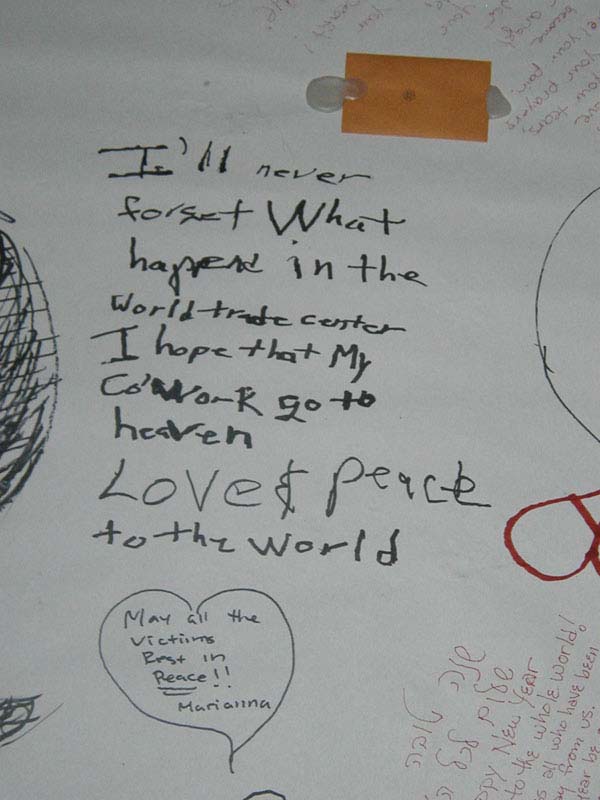 I'll never
forget What
happend in the
World trade center
I hope that My
Co'Work go to
heaven
Love & peace
to the World
May all the
Victims
Rest in
Peace!!
Marianna
שנה טובה
שלום לכל
PPY New Year
to the whole World!
all who have been
from us.
year be